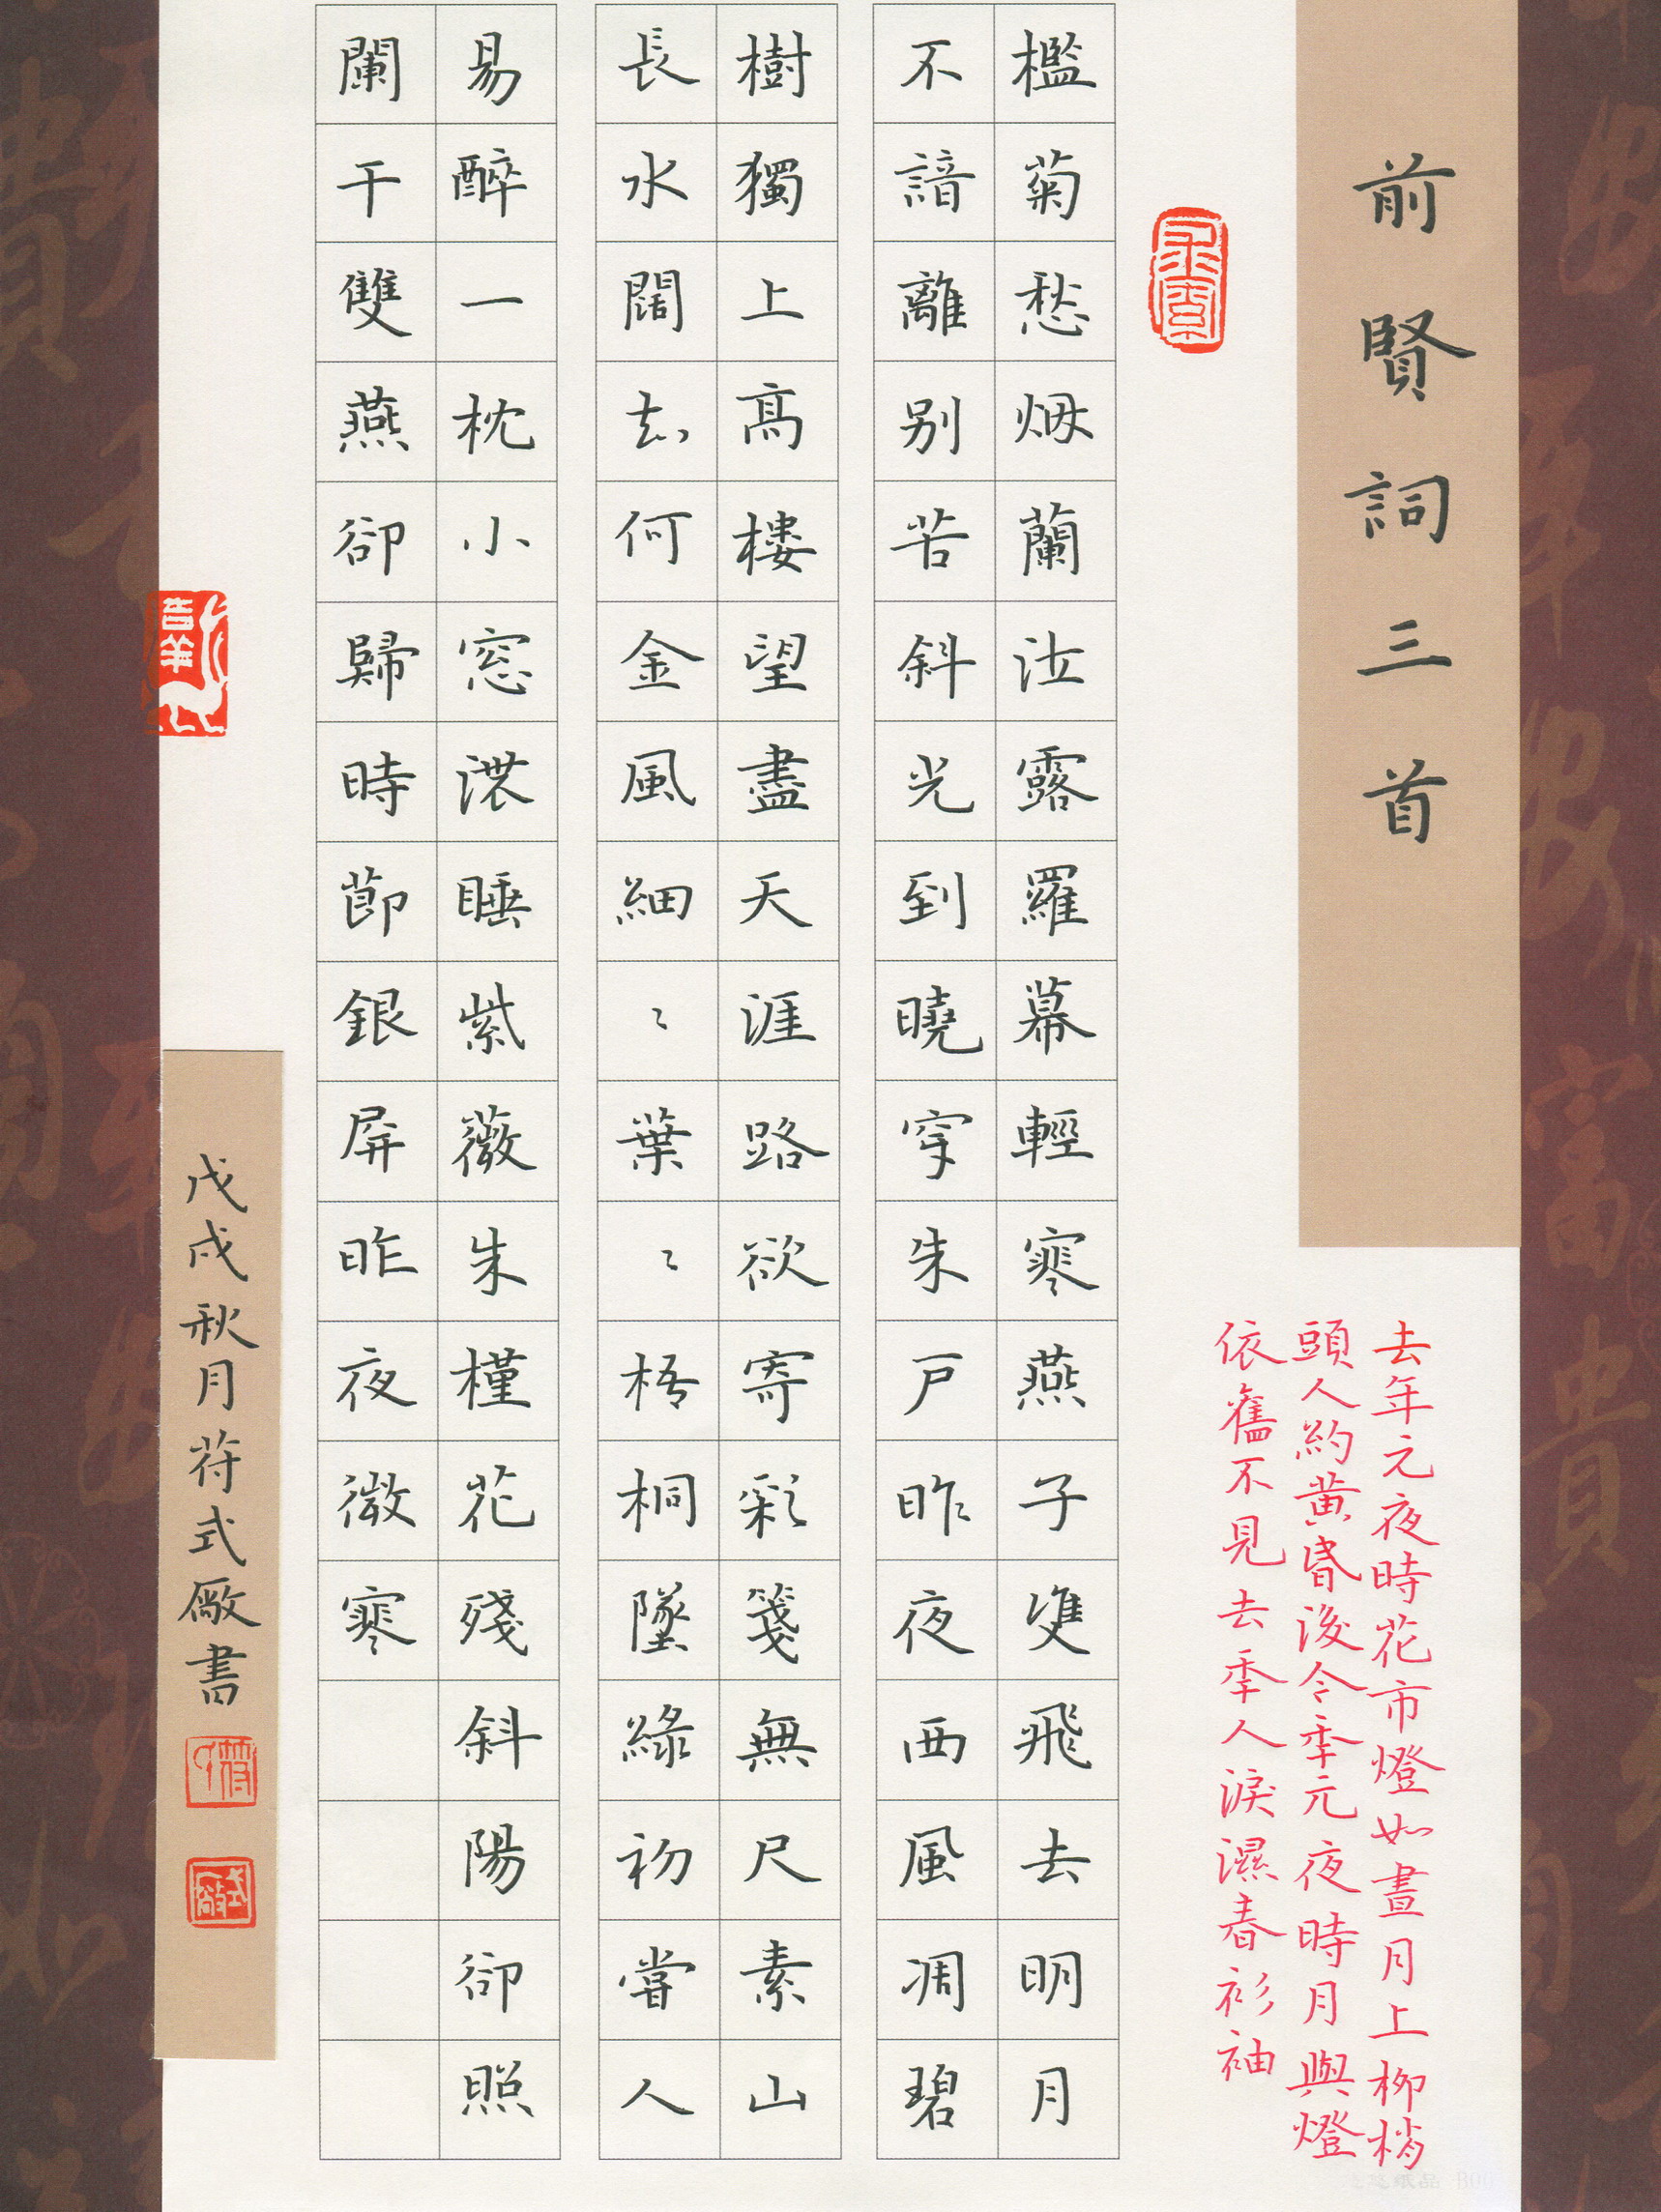 前賢詞三首
去年元夜時花市燈如晝月上柳梢
頭人約黃昏後今季元夜時月與燈
依舊不見去季人淚濕春衫袖
檻菊愁烟蘭泣露羅幕輕寒燕子雙飛去明月
不諳離别苦斜光到曉穿朱戶昨夜西風凋碧
樹獨上高樓望盡天涯路欲寄彩箋無尺素山
長水闊知何金風細〻葉〻梧桐墜綠初嘗人
易醉一枕小窓濃睡紫薇朱槿花殘斜陽卻照
闌干雙燕卻歸時節銀屏昨夜微寒
戊戌秋月苻式厰書